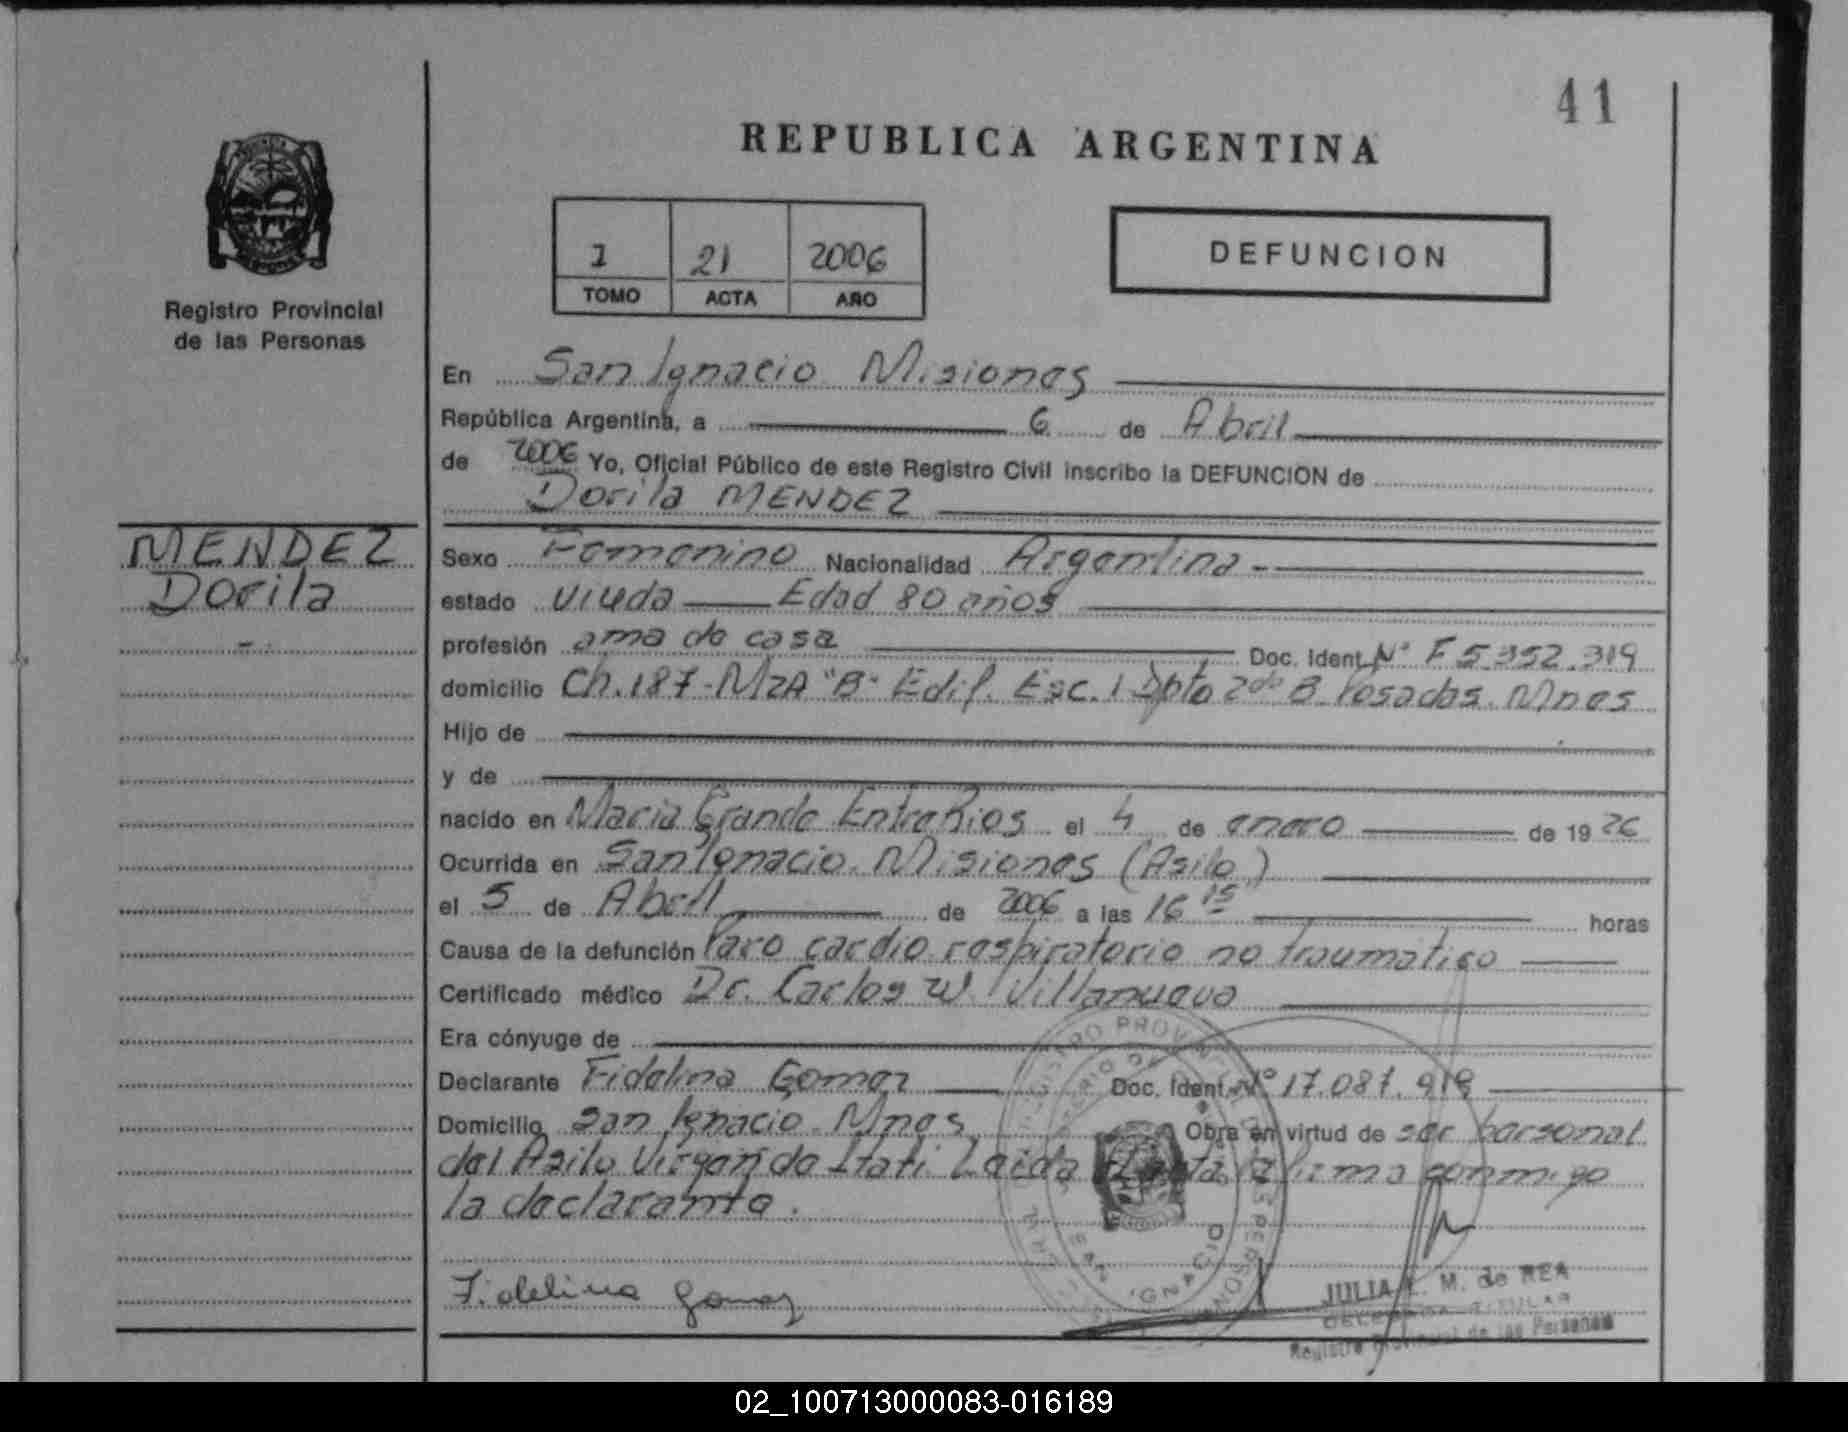 41
REPUBLICA ARGENTINA
1 21 2006
TOMO ACTA AÑO
DEFUNCION
Registro Provincial
de las Personas
En San Ignacio Misiones
República Argentina, a 6 de Abril
de 2006 Yo, Oficial Público de este Registro Civil inscribo la DEFUNCION de
Dorila MENDEZ
MENDEZ
Dorila
Sexo Femenino Nacionalidad Argentina
estado viuda Edad 80 años
profesión ama de casa Doc. Ident. Nº F 5.352.319
domicilio Ch. 187 - MzA "B" Edif. Esc. 1 Dpto 2do B Posadas. Mnes
Hijo de
y de
nacido en Maria Grande Entre Rios el 4 de enero de 19 26
Ocurrida en San Ignacio. Misiones (Asilo)
el 5 de Abril de 2006 a las 16 15 horas
Causa de la defunción Paro cardio respiratorio no traumatico
Certificado médico Dr. Carlos W. Villanueva
Era cónyuge de
Declarante Fidelina Gomez Doc. Ident. Nº 17.087.919
Domicilio San Ignacio. Mnes Obra en virtud de ser personal
del Asilo Virgen de Itati. Leida el acta la firma conmigo
la declarante.
Fidelina Gomez
JULIA M. de REA
DELEGADA TITULAR
Registro Provincial de las Personas
02_100713000083-016189